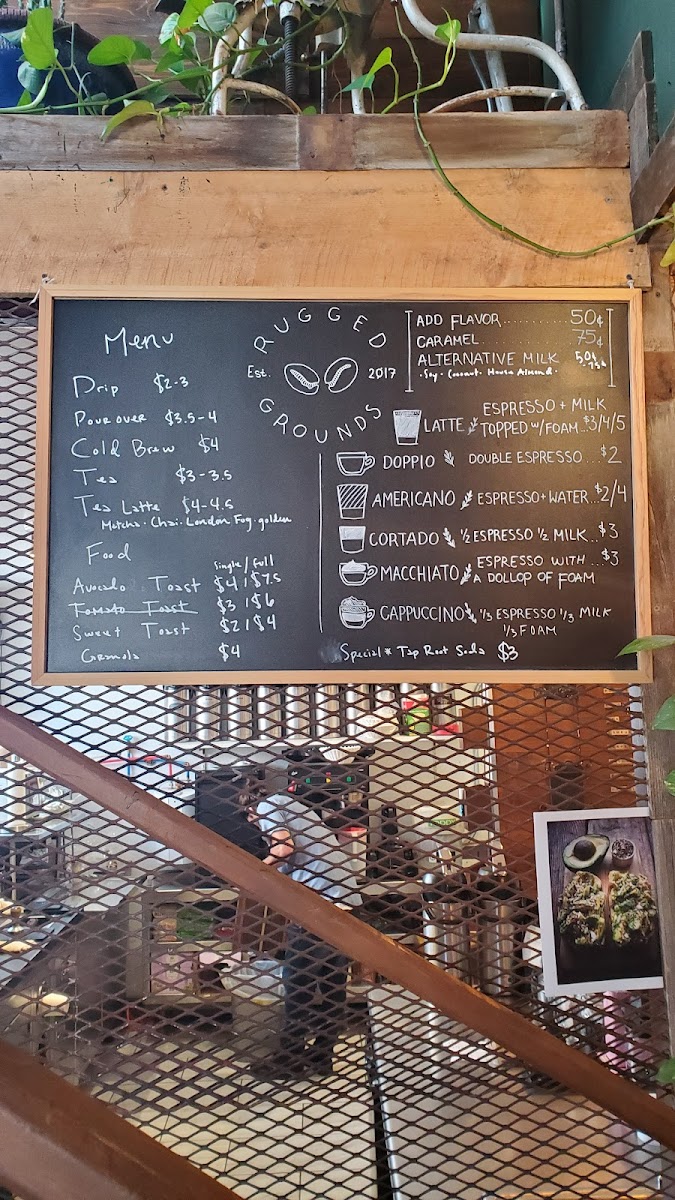 Menu
Drip $2-3
Pour over $3.5-4
Cold Brew $4
Tea $3-3.5
Tea Latte $4-4.5
Matcha · Chai · London Fog · golden
Food
Single / Full
Avocado Toast $4 | $7.5
Tomato Toast $3 | $6
Sweet Toast $2 | $4
Granola $4
RUGGED
Est. 2017
GROUNDS
ADD FLAVOR..........50¢
CARAMEL..........75¢
ALTERNATIVE MILK 50¢
· Soy · Coconut · House Almond · 75¢
LATTE ESPRESSO + MILK
TOPPED w/ FOAM $3/4/5
DOPPIO DOUBLE ESPRESSO...$2
AMERICANO ESPRESSO+WATER..$2/4
CORTADO ½ ESPRESSO ½ MILK..$3
MACCHIATO ESPRESSO WITH ..$3
A DOLLOP OF FOAM
CAPPUCCINO ⅓ ESPRESSO ⅓ MILK
⅓ FOAM
Special * Tap Root Soda $3